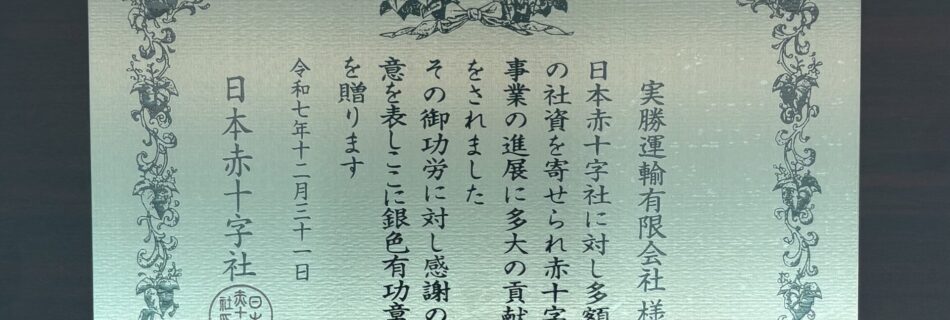 実勝運輸有限会社 様
日本赤十字社に対し多額
の社資を寄せられ赤十字
事業の進展に多大の貢献
をされました
その御功労に対し感謝の
意を表しここに銀色有功章
を贈ります
令和七年十二月三十一日
日本赤十字社